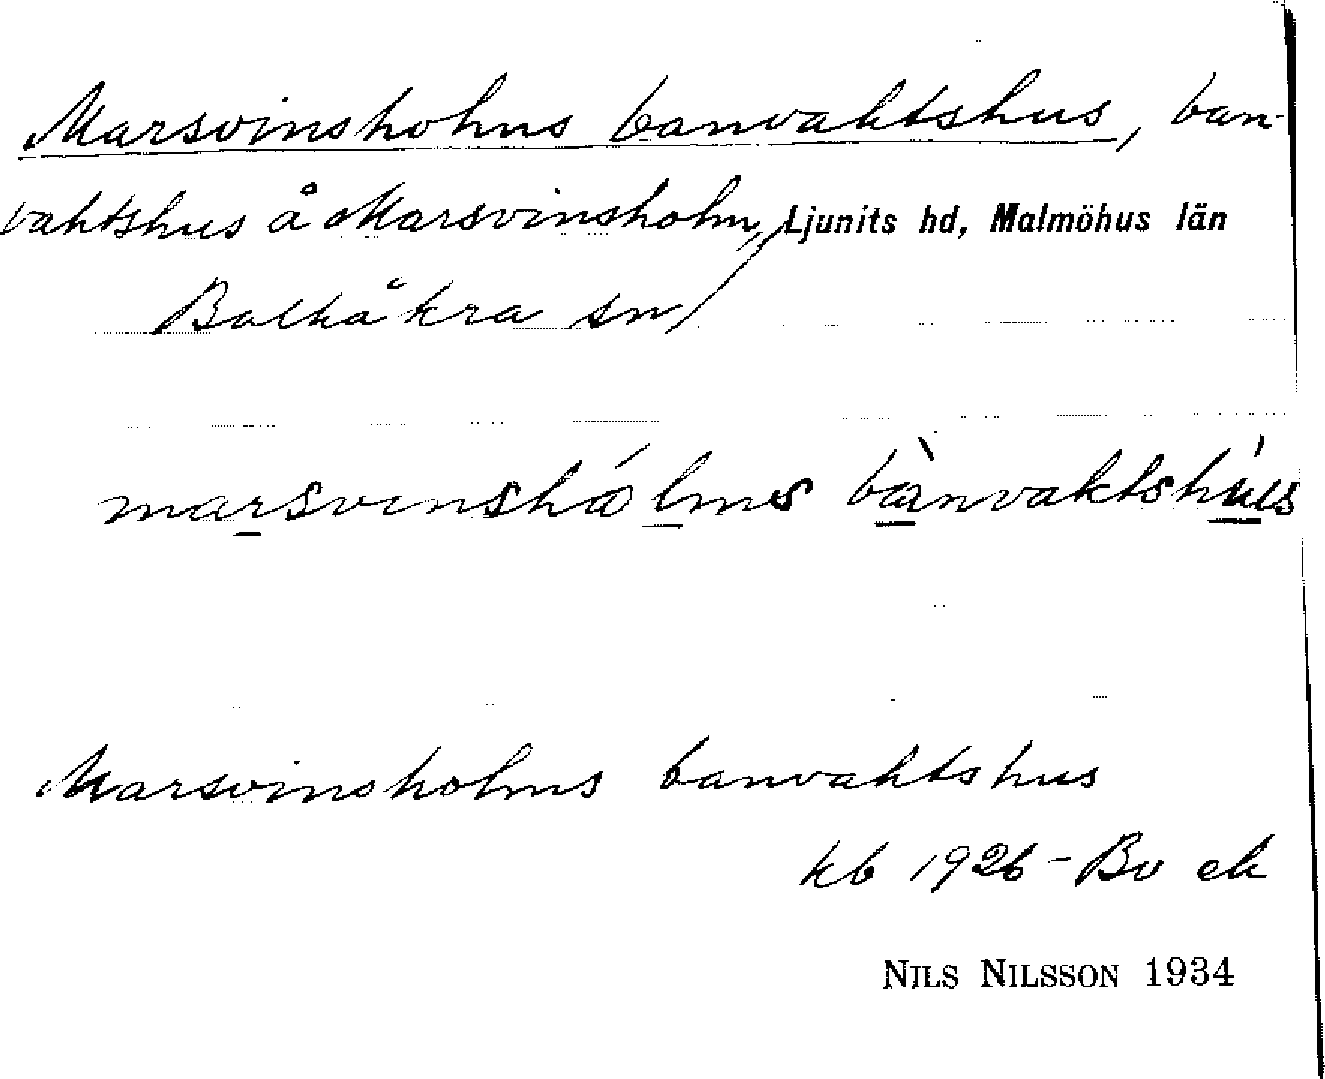 Marsvinsholms banvaktshus, ban-
vaktshus å Marsvinsholm, Ljunits hd, Malmöhus län
Balkåkra sn
marsvinshólms bànvaktshùs
Marsvinsholms banvaktshus
kb 1926 - Bo ek
NILS NILSSON 1934